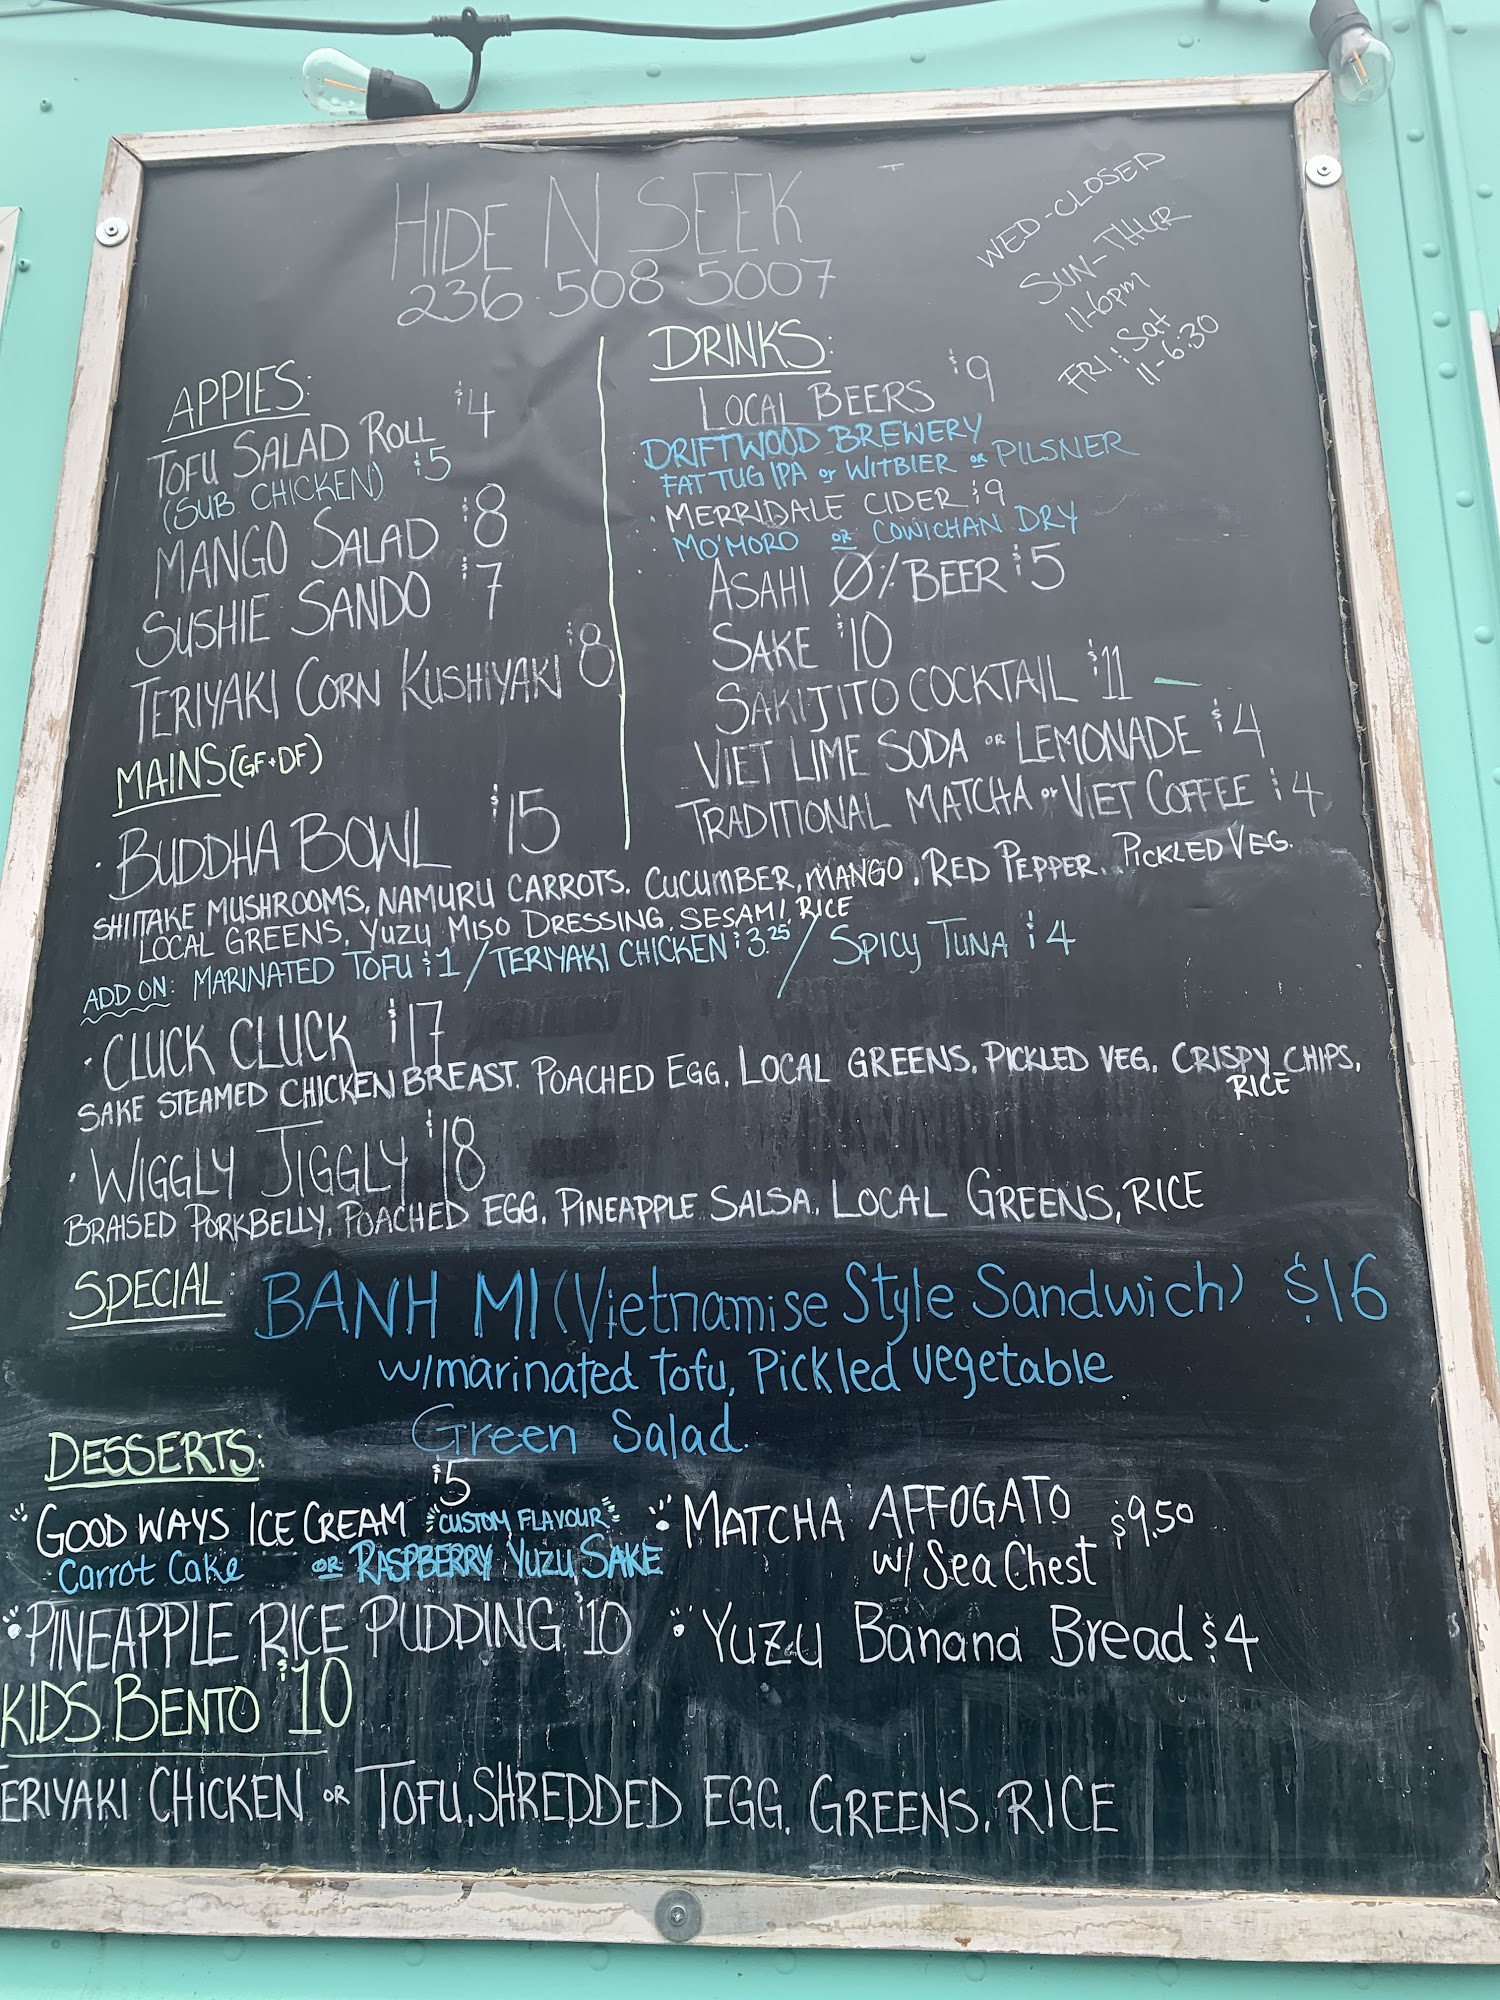 HIDE N SEEK
236.508.5007
WED-CLOSED
SUN-THUR
11-6pm
FRI & Sat
11-6:30
APPIES:
TOFU SALAD ROLL $4
(SUB CHICKEN) $5
MANGO SALAD $8
SUSHIE SANDO $7
TERIYAKI CORN KUSHIYAKI $8
DRINKS:
LOCAL BEERS $9
· DRIFTWOOD BREWERY
FAT TUG IPA or WITBIER or PILSNER
· MERRIDALE CIDER $9
· MO'MORO OR COWICHAN DRY
ASAHI 0% BEER $5
SAKE $10
SAKIJITO COCKTAIL $11
VIET LIME SODA OR LEMONADE $4
TRADITIONAL MATCHA or VIET COFFEE $4
MAINS (GF+DF)
· BUDDHA BOWL $15
SHIITAKE MUSHROOMS, NAMURU CARROTS. CUCUMBER, MANGO, RED PEPPER. PICKLED VEG.
LOCAL GREENS, YUZU MISO DRESSING, SESAMI, RICE
ADD ON: MARINATED TOFU $1 / TERIYAKI CHICKEN $3.25 / SPICY TUNA $4
· CLUCK CLUCK $17
SAKE STEAMED CHICKEN BREAST. POACHED EGG, LOCAL GREENS, PICKLED VEG, CRISPY CHIPS,
RICE
· WIGGLY JIGGLY $18
BRAISED PORKBELLY, POACHED EGG, PINEAPPLE SALSA, LOCAL GREENS, RICE
SPECIAL: BANH MI (Vietnamise Style Sandwich) $16
w/marinated Tofu, Pickled vegetable
Green Salad.
DESSERTS:
GOOD WAYS ICE CREAM $5 CUSTOM FLAVOUR
Carrot Cake OR RASPBERRY YUZU SAKE
MATCHA AFFOGATO $9.50
w/ Sea Chest
PINEAPPLE RICE PUDDING $10
Yuzu Banana Bread $4
KIDS BENTO $10
TERIYAKI CHICKEN OR TOFU, SHREDDED EGG, GREENS, RICE